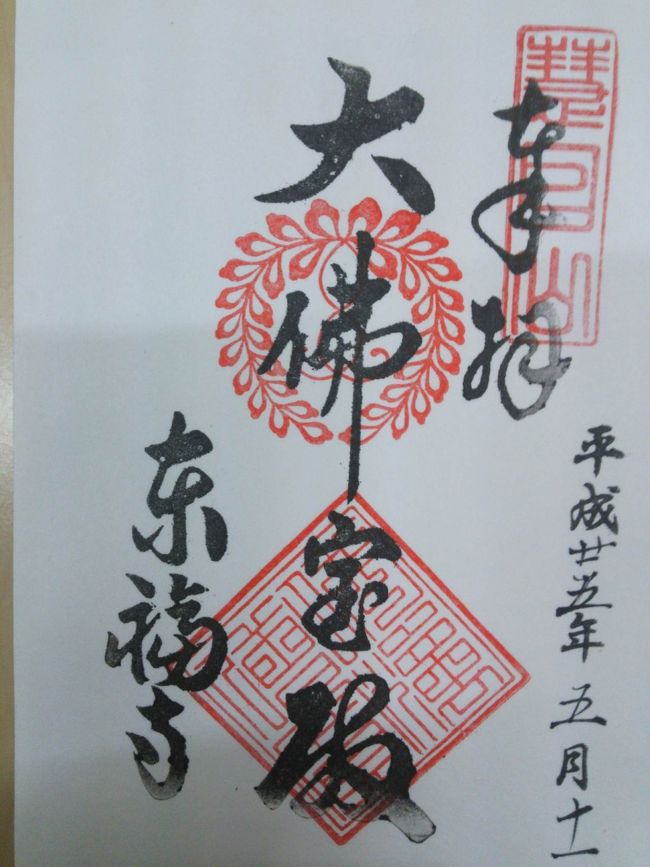 奉拝
慧日山
平成廿五年五月十一
大佛宝殿
东福寺